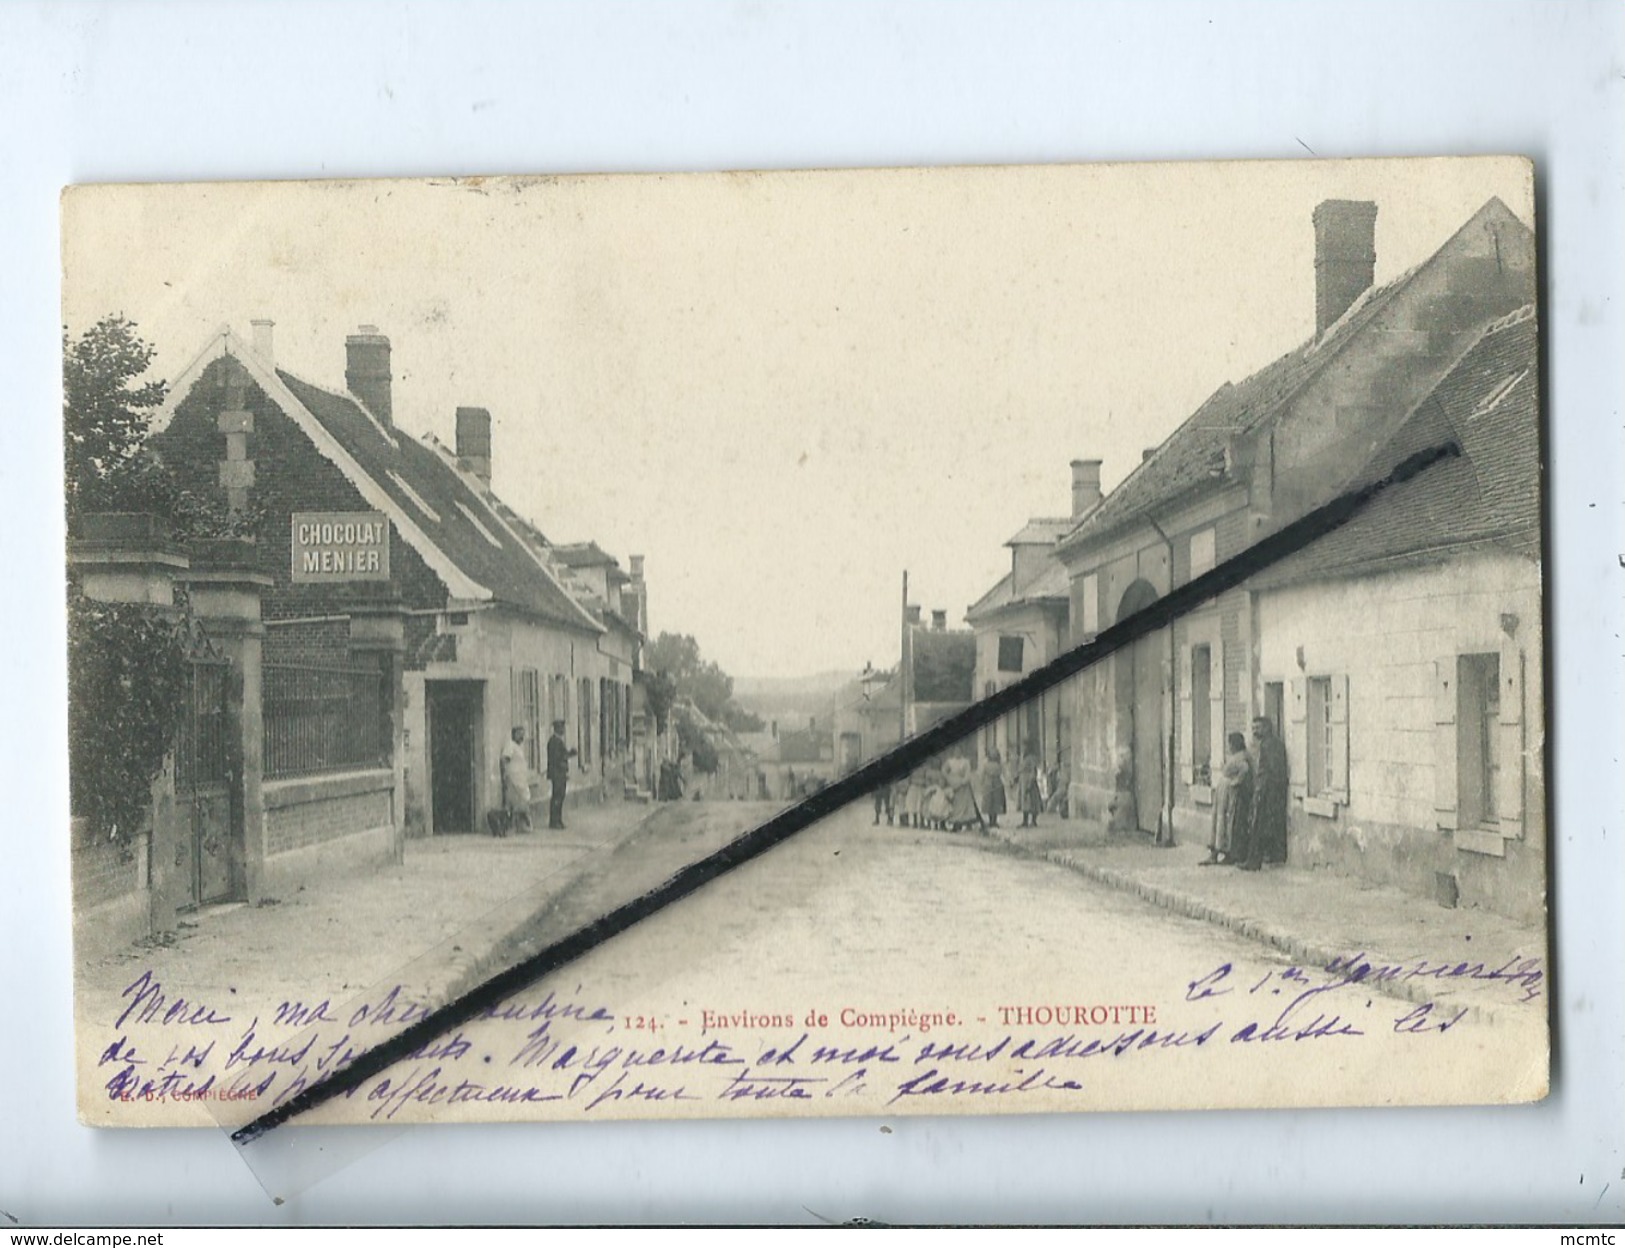 CHOCOLAT
MENIER
124. - Environs de Compiègne. - THOUROTTE
Le 1er Janvier
Merci, ma chère cousine,
de vos bons souhaits. Marguerite et moi vous adressons aussi les
nôtres les plus affectueux pour toute la famille
E. D., COMPIÈGNE
www.delcampe.net
mcmtc